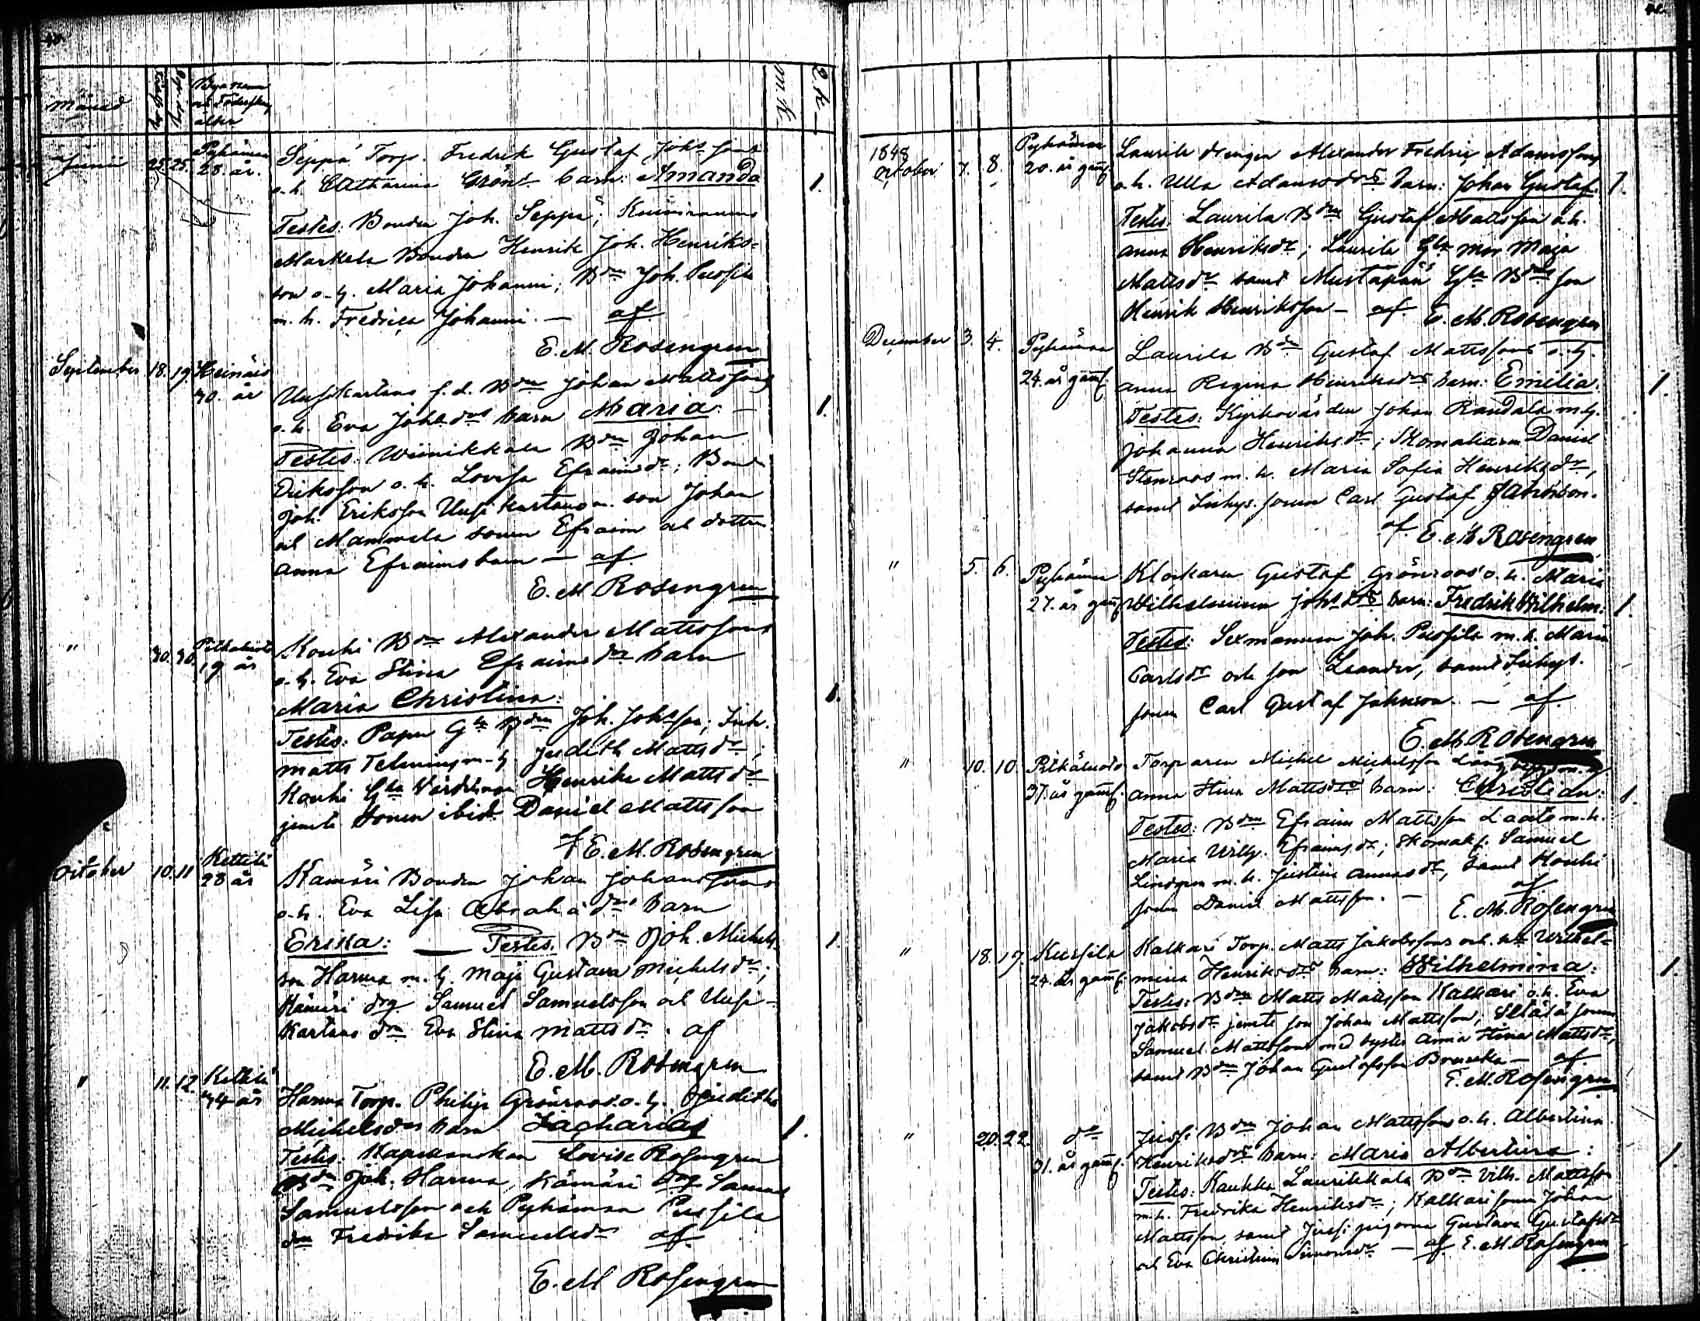 Månad
M. K.
Q. K.
Juni 25. 25. Pyhämaa 28. år. Seppä Torp. Fredrik Gustaf Johssons
o. h. Catharina Gröns barn: Amanda 1.
Testes: Bonden Joh. Seppä;
Markula Bonden Henrik Joh. Henriks-
son o. h. Maria Johanni; Bdn Joh. Pusfila
m. h. Fredrica Johanni. — af
E. M. Rosengren
September 18. 19. Heinäis 40. år Uusikartano f. d. Bdn Johan Mattssons
o. h. Eva Johsdrs barn Maria — 1.
Testes: Weinikkala Bdn Johan
Eriksson o. h. Lovisa Efraimsdr; Bond
Joh. Eriksson Uusikartano m. son Johan
och Mammala sonen Efraim och dottern
Anna Efraimsbarn — af
E. M Rosengren
" 30. 30. 19 år Kouhi Bdn Alexander Mattssons
o. h. Eva Stina Efraimsdrs barn
Maria Christina. 1.
Testes: Papu Gla Bdn Joh. Johsson; Inh.
Matts m. h. Judith Mattsdr;
Kouhi Gla Värdinnan Henrika Mattsdr
jemte Sonen ibid. Daniel Mattsson
af E. M. Rosengren
October 10. 11 Kettili 28 år Kamäri Bonden Johan Johanssons
o. h. Eva Lisa Abrah:drs barn
Erika: — Testes. Bdn Joh. Michels- 1.
son Harma m. h. Maja Gustava Michelsdr;
Kämäri drg Samuel Samuelsson och Uusi-
Kartano dn Eva Stina Mattsdr. af
E. M. Rosengren
" 11. 12. Kettili 34 år Harma Torp. Philip Grönroos o. h. Judith
Michelsdrs barn Zacharias 1.
Testes: Kapellanskan Lovise Rosengren
Bdn Joh. Harma, Kämäri Drg Samuel
Samuelsson och Pyhämaa Pussila
dn Fredrika Samuelsdr af
E. M Rosengren
1848 October 7. 8. Pyhämaa 20. år gam. Laurila drengen Alexander Fredric Adamssons
o. h. Ulla Adamsdrs barn: Johan Gustaf. 1.
Testes. Laurila Bdn Gustaf Mattsson o. h.
Anna Henriksdr; Laurila Gla mor Maja
Mattsdr samt Mustapää Gla Bdns son
Henrik Henriksson — af E. M. Rosengren
December 3. 4. Pyhämaa 24. år gam. Laurila Bdn Gustaf Mattssons o. h.
Anna Regina Henriksdrs barn: Emelia. 1
Testes: Kyrkovärden Johan Randala m. h.
Johanna Henriksdr; Skomakaren Daniel
Stenroos m. h. Maria Sofia Henriksdr,
samt Inhys. sonen Carl Gustaf Jahnsson.
af E. M Rosengren
" 5. 6. Pyhämaa 27. år gam. Klockaren Gustaf Grönroos' o. h. Maria
Wilhelmina Johsdrs barn: Fredrik Wilhelm. 1.
Testes: Sexmannen Joh. Pusfila m. h. Maria
Carlsdr och son Leander, samt Inhys.
sonen Carl Gustaf Jahnson. — af
E. M. Rosengren
" 10. 10. Pitkäluoto 37. år gam. Torparen Michel Michelsson m. h.
Anna Stina Mattsdrs barn: Christian: 1.
Testes: Bdn Efraim Mattsson Laato m. h.
Maria Wilh. Efraimsdr; Skomak. Samuel
Lindgren m. h. Justina Annasdr, samt Kouhi
sonen Daniel Mattsson. — af
E. M. Rosengren
" 18. 19. Kussila 24. år gam. Kalkari Torp. Matts Jakobssons och h. Wilhel-
mina Henriksdrs barn: Wilhelmina: 1
Testes: Bdn Matts Mattsson Kalkari o. h. Eva
Jakobsdr jemte son Johan Mattsson, sonen
Samuel Mattsson med syster Anna Stina Mattsdr,
samt Bdn Johan Gustafsson — af
E. M. Rosengren
" 20. 22. do 31. år gam. Jussi Bdn Johan Mattssons o. h. Albertina
Henriksdrs barn: Maria Albertina: 1
Testes: Kaukka Laurikkala Bdn Vilh. Mattsson
m. h. Fredrika Henriksdr; Kalkari sonen Johan
Mattsson, samt Jussi pigorna Gustava Gustafsdr
och Eva Christina Simonsdr — af E. M. Rosengren